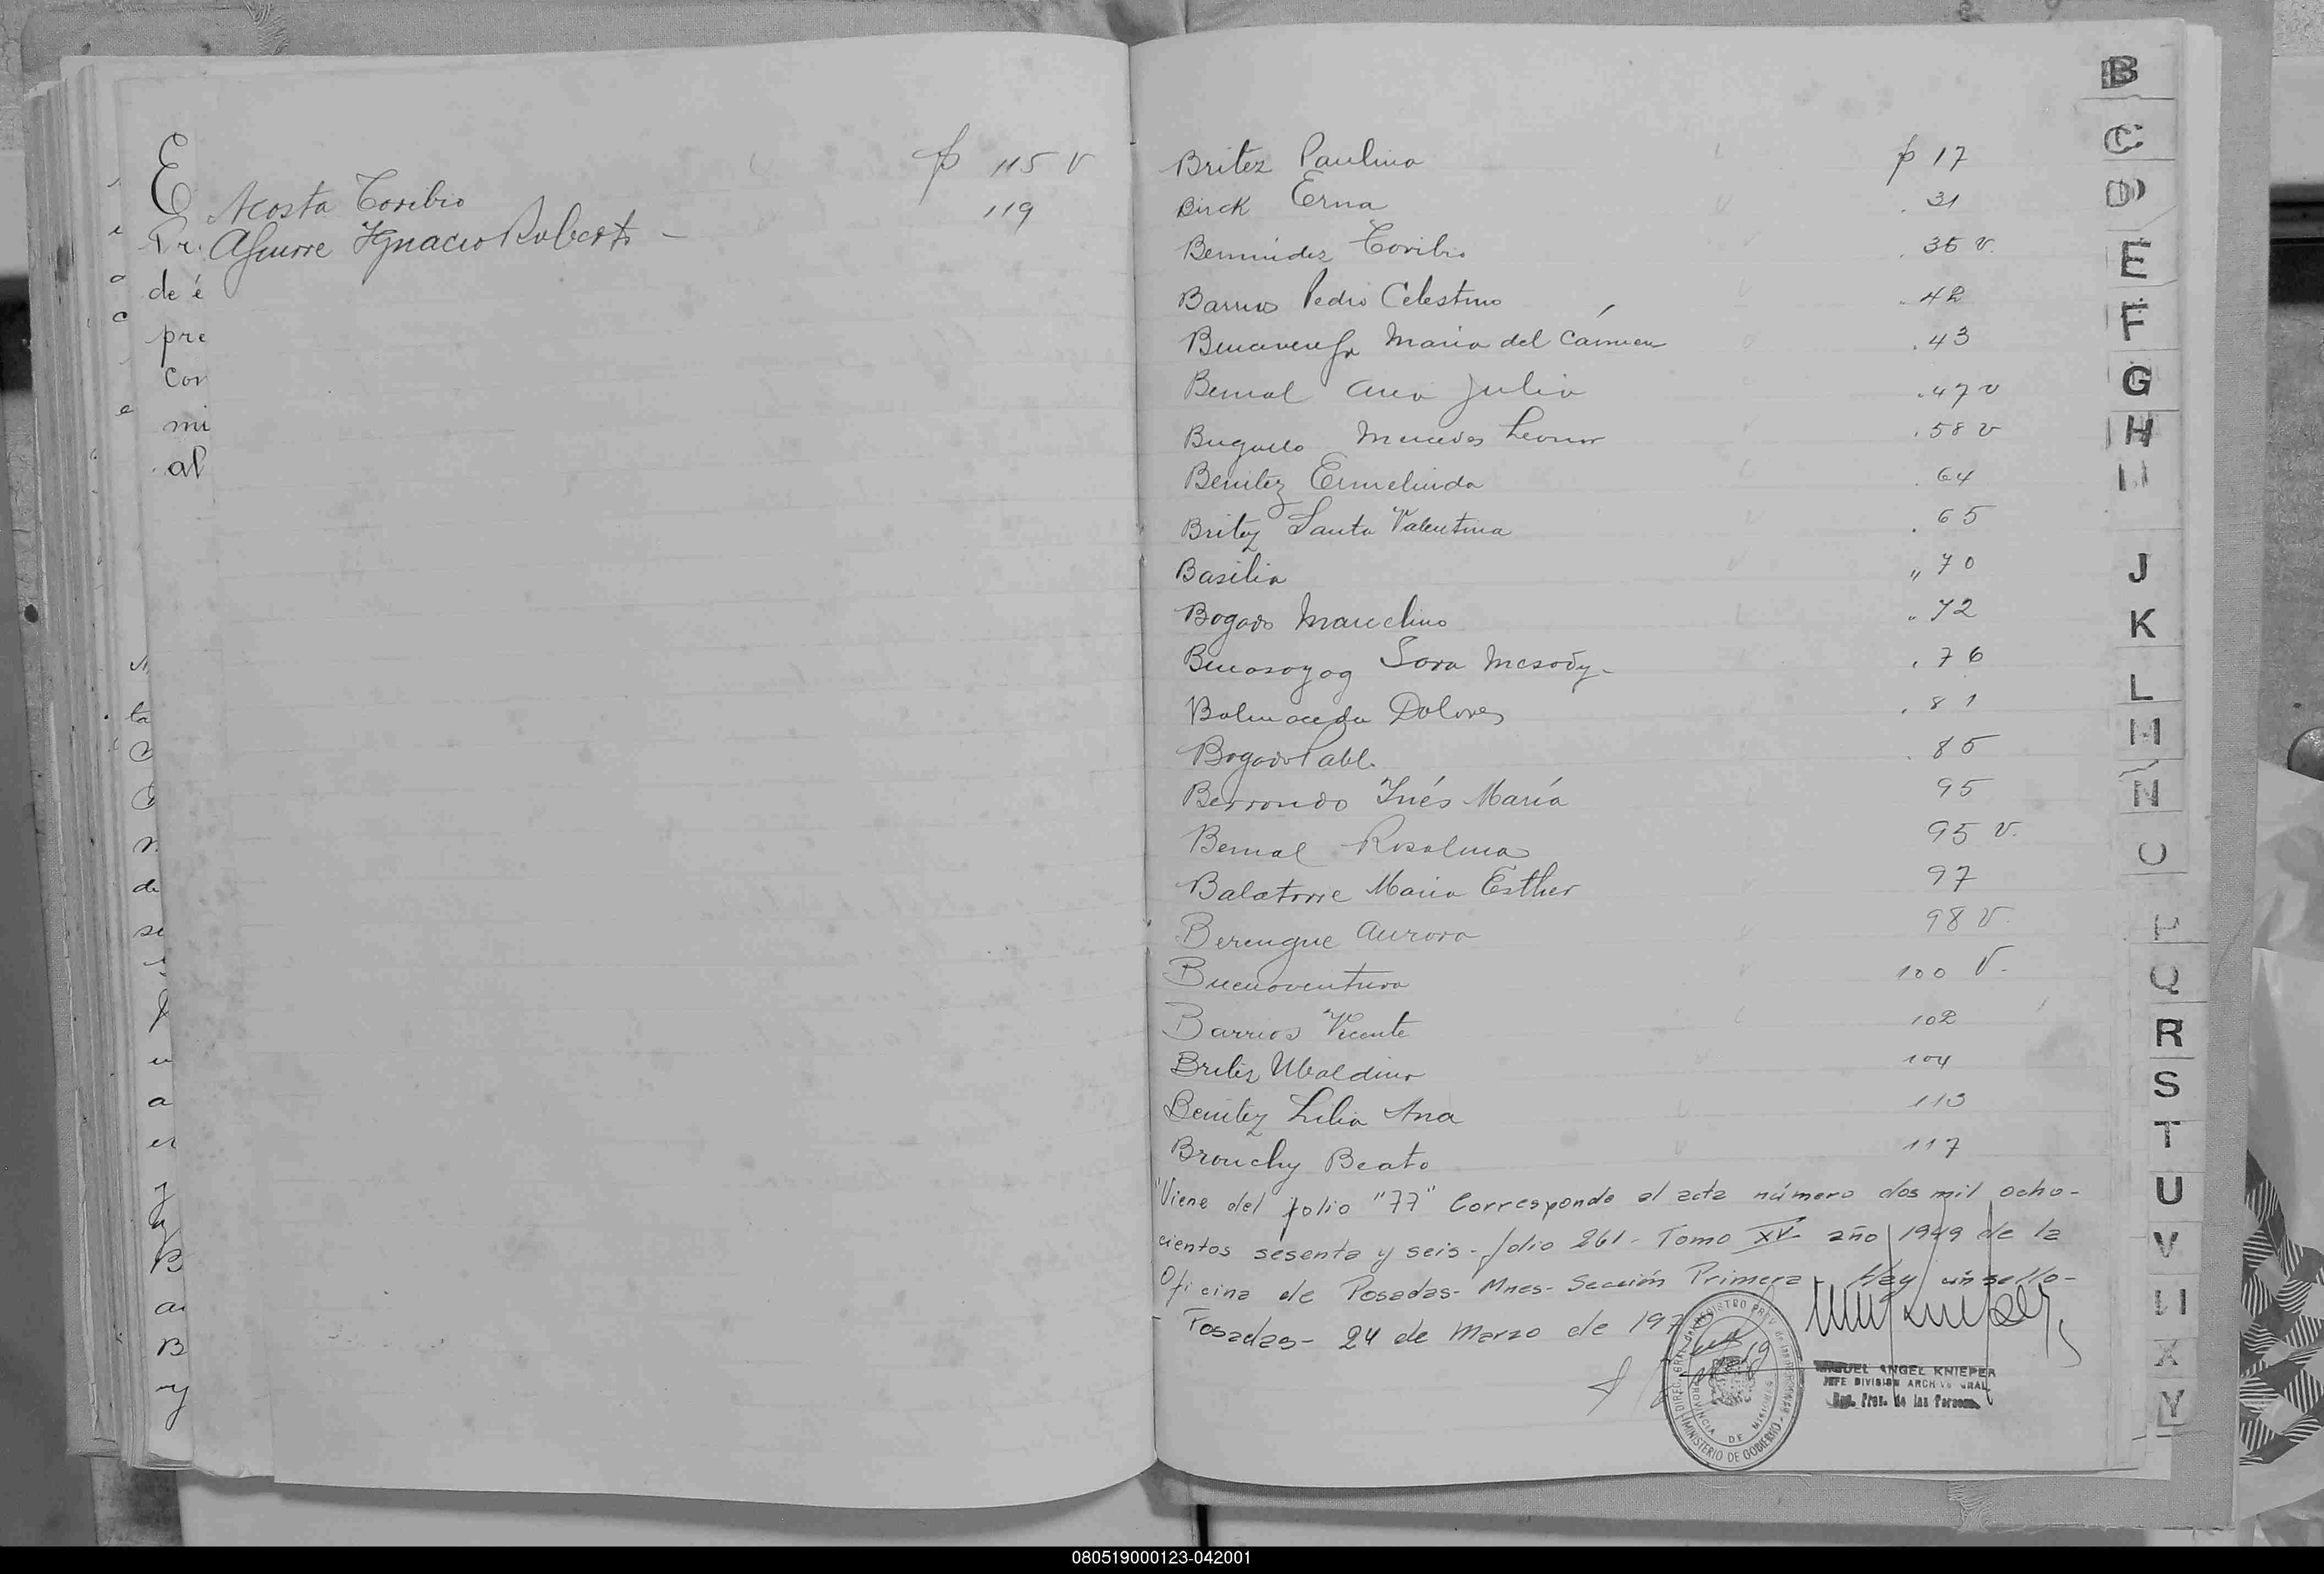 Acosta Toribio p 115 v
Aguirre Ygnacio Roberto - 119
E
de é
pre
con
mi
al
Britez Paulina p 17
Birck Erna . 31
Bermúdez Toribio . 35 v.
Barrios Pedro Celestino . 42
María del Cármen . 43
Bernal Ana Julia . 47 v
Mercedes Leonor . 58 v
Benitez Ermelinda . 64
Britez Santa Valentina . 65
Basilia " 70
Bogado Marcelino " 72
Benasayag Sara Mesody- . 76
Balmaceda Dolores . 81
Bogado Pablo . 85
Berrondo Ynés María 95
Bernal Rosalina 95 v.
Balatorre María Esther 97
Berengue Aurora 98 v.
Buenaventura 100 v.
Barrios Vicente 102
Britez Ubaldino 104
Benitez Lilia Ana 113
Brouchy Beato 117
"Viene del folio "77" Corresponde al acta número dos mil ocho-
cientos sesenta y seis- folio 261- Tomo XV año 1949 de la
Oficina de Posadas- Mnes- Sección Primera- Hay un sello-
Posadas- 24 de Marzo de 197
DIREC. GRAL. del REGISTRO PROV. de las PERSONAS
PROVINCIA DE MISIONES
MINISTERIO DE GOBIERNO
MIGUEL ANGEL KNIEPER
JEFE DIVISION ARCHIVO GRAL.
Reg. Prov. de las Personas
B
C
D
E
F
G
H
J
K
L
M
Ñ
O
P
Q
R
S
T
U
V
X
Y
080519000123-042001